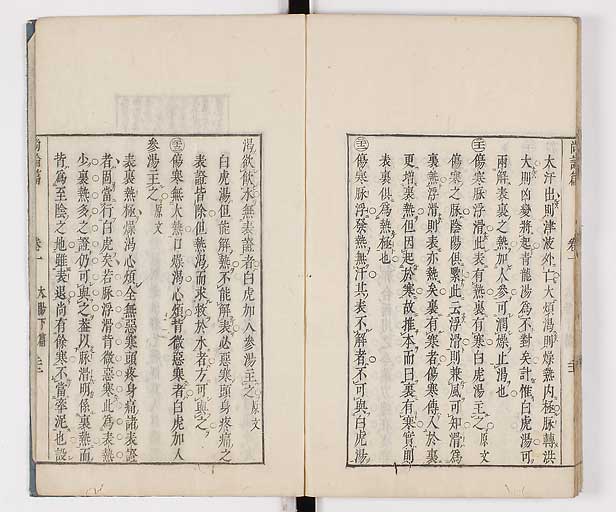 尚論篇 卷一
太汗出則津液外亡大煩渴則燥熱內極脉轉洪
大則凶變將起青龍湯為不對矣計惟白虎湯可
兩解表裏之熱加人參可潤燥止渴也
傷寒脉浮滑此表有熱裏有寒白虎湯主之原文
傷寒之脉陰陽俱緊此云浮滑則兼風可知滑為
裏熱浮滑則表亦熱矣裏有寒者傷寒傳入於裏
更增裏熱但因起於寒故推本而曰裏有寒實則
表裏俱為熱極也
傷寒脉浮發熱無汗其表不解者不可與白虎湯
渴欲飲水無表證者白虎加人參湯主之原文
白虎湯但能解熱不能解表必惡寒頭身疼痛之
表證皆除但熱渴而求救於水者方可與之
傷寒無大熱口燥渴心煩背微惡寒者白虎加人
參湯主之原文
表裏熱極燥渴心煩全無惡寒頭疼身痛諸表證
者固當行白虎矣若脉浮滑背微惡寒此為表證
少裏熱多之證仍可與之蓋以脉滑明係裏熱而
背為至陰之地雖表退尚有餘寒不當牽泥也設
尚論篇 卷一 太陽下篇